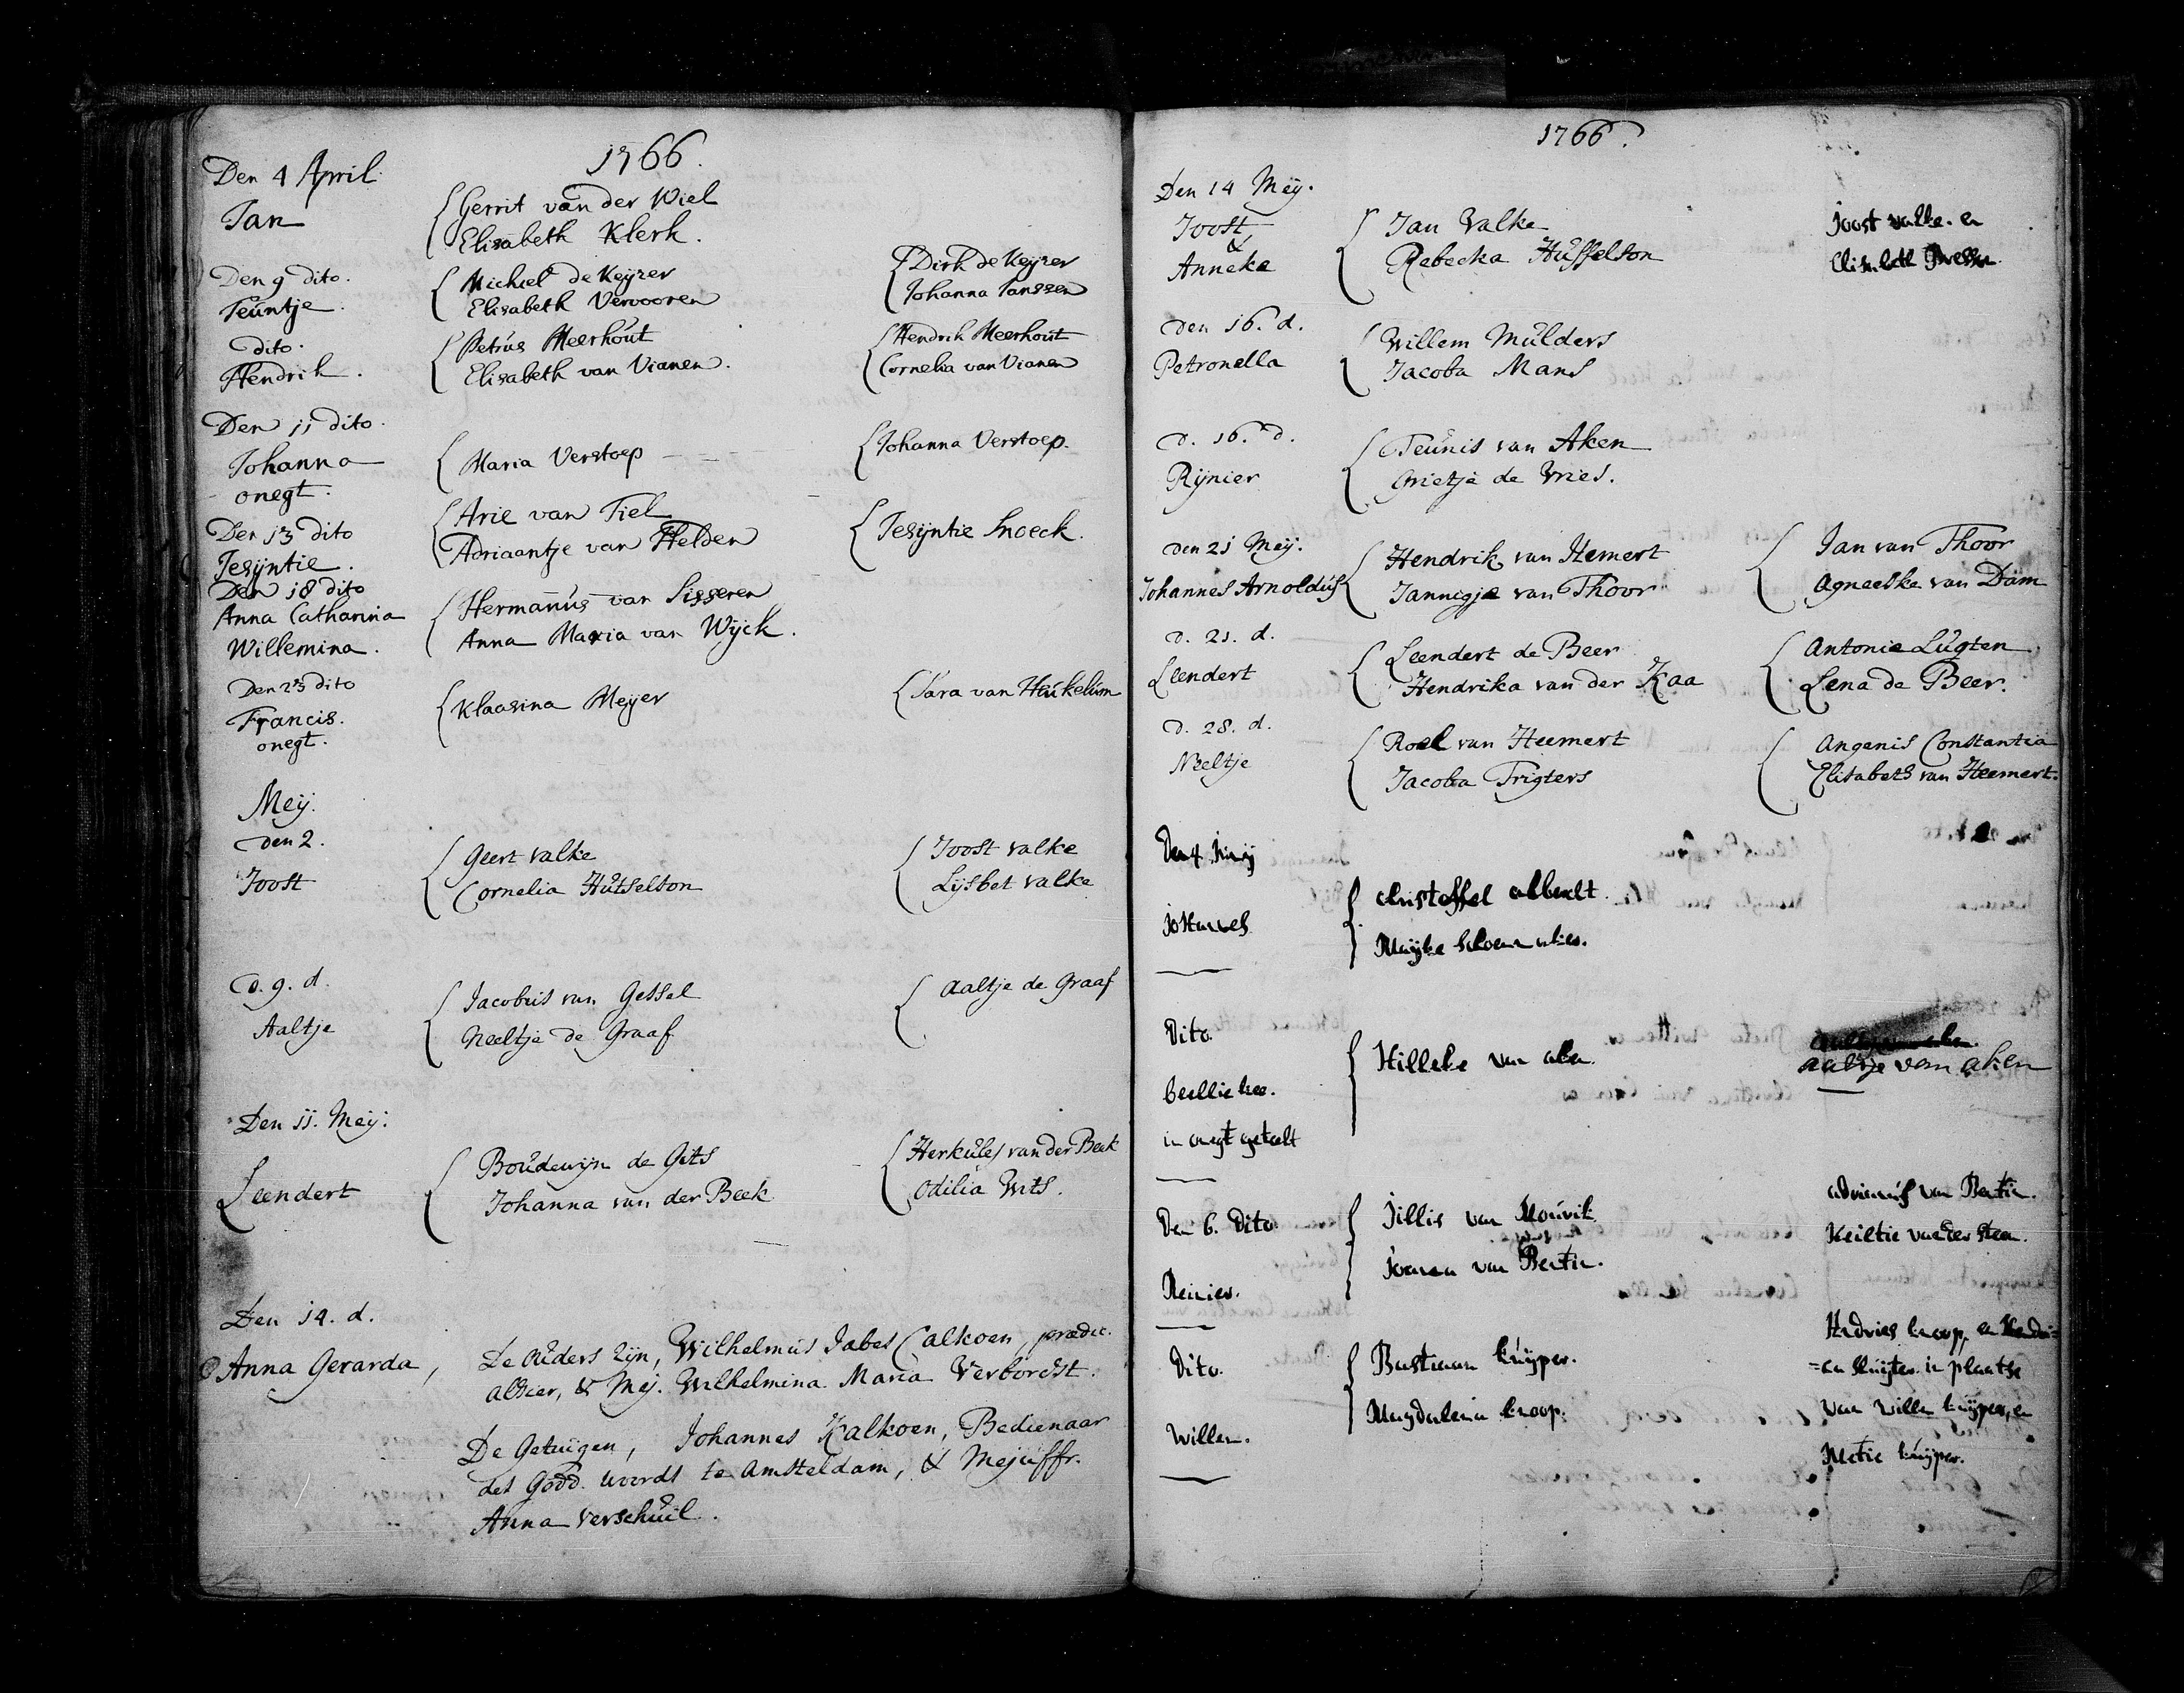 1766.
Den 4 April
Jan
Gerrit van der Wiel
Elisabeth Klerk.
Den 9 dito.
Teuntje.
Michiel de Keyzer
Elisabeth Vervooren
Dirk de Keyzer
Johanna Janssen
dito.
Hendrik.
Petrus Meerhout
Elisabeth van Vianen.
Hendrik Meerhout
Cornelia van Vianen
Den 11 dito.
Johanna
onegt.
Maria Verstoep
Johanna Verstoep.
Den 13 dito
Jesijntie.
Arie van Tiel
Adriaantje van Helden
Jesijntie Snoeck.
Den 18 dito
Anna Catharina
Willemina.
Hermanus van Sisseren
Anna Maria van Wijck.
Den 23 dito
Francis.
onegt.
Klaasina Meyer
Sara van Heukelum
Meij.
den 2.
Joost
Geert valke
Cornelia Hutselton
Joost valke
Lijsbet valke
d. 9. d.
Aaltje
Jacobus van Gessel
Neeltje de Graaf
Aaltje de Graaf
Den 11. Meij:
Leendert
Boudewijn de Gits
Johanna van der Beek
Herkules van der Beek
Odilia Wits.
Den 14. d.
Anna Gerarda,
De Ouders zijn, Wilhelmus Jabes Calkoen, praedic.
alhier, & Mej. Wilhelmina Maria Verbordst.
De Getuigen, Johannes Kalkoen, Bedienaar
des Godd. woords te Amsteldam, & Mejuffr.
Anna Verschuil.
1766.
Den 14 Meij.
Joost
&
Anneke
Jan Valke
Rebecka Husselton
Joost valke. en
Elisabeth
den 16. d.
Petronella
Willem Mulders
Jacoba Mans
d. 16. d.
Rijnier
Teunis van Aken
Grietje de Vries.
den 21 Meij.
Johannes Arnoldus
Hendrik van Hemert
Jannigje van Thoor
Jan van Thoor
Agneeske van Dam
d. 21. d.
Leendert
Leendert de Beer
Hendrika van der Kaa
Antonie Lugten
Lena de Beer.
d. 28. d.
Neeltje
Roel van Heemert
Jacoba Trigters
Angenis Constantia
Elisabeth van Heemert.
Den 4
christoffel
Maijke
Dito.
Hilleke van aken.
aaltje van aken
in onegt geteelt
Den 6. Dito.
Reinier.
Jillis van Mouvik
van Bentin.
adrianus van Bentin.
van der Steen.
Dito.
Willem.
Bastiaan kuijper.
Magdalena knoop.
knoop, en
in plaatse
van willem kuijper, en
Metie kuijper.